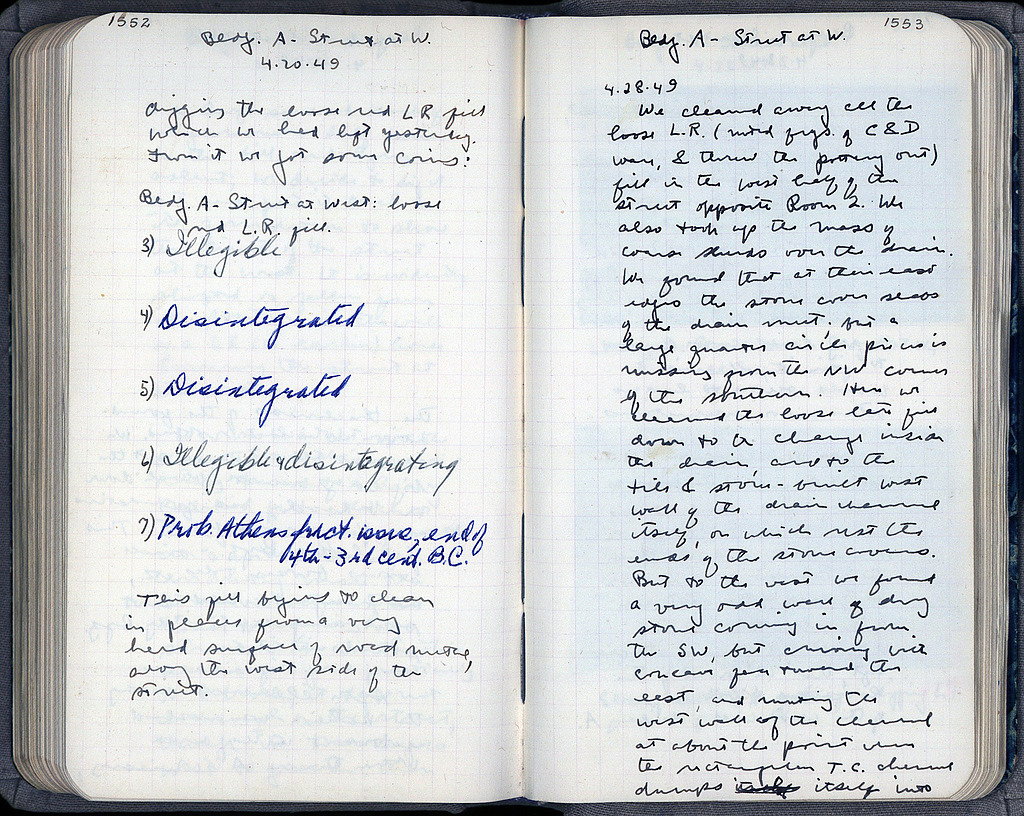 1552
Bldg. A - Street at W.
4.20.49
digging the loose red L.R. fill
which we had left yesterday.
From it we got some coins:
Bldg. A - Street at West: loose
red L.R. fill.
3) Illegible
4) Disintegrated
5) Disintegrated
6) Illegible & disintegrating
7) Prob. Athens fract. issue, end of
4th - 3rd cent. B.C.
This fill begins to clean
in places from a very
hard surface of road metal,
along the west side of the
street.
1553
Bldg. A - Street at W.
4.28.49
We cleaned away all the
loose L.R. (mixed frgs. of C & D
ware, & threw the pottery out)
fill in the west half of the
street opposite Room 2. We
also took up the mass of
coarse sherds over the drain.
We found that at their east
edges the stone cover slabs
of the drain meet; but a
large quarter circle piece is
missing from the NW corner
of the southern. Here we
cleaned the loose late fill
down to a change inside
the drain, and to the
tile & stone-built west
wall of the drain channel
itself, on which rest the
ends of the stone covers.
But to the west we found
a very odd wall of dry
stone coming in from
the SW, but curving with
concave face toward the
east, and meeting the
west wall of the channel
at about the point where
the rectangular T.C. channel
dumps itself into